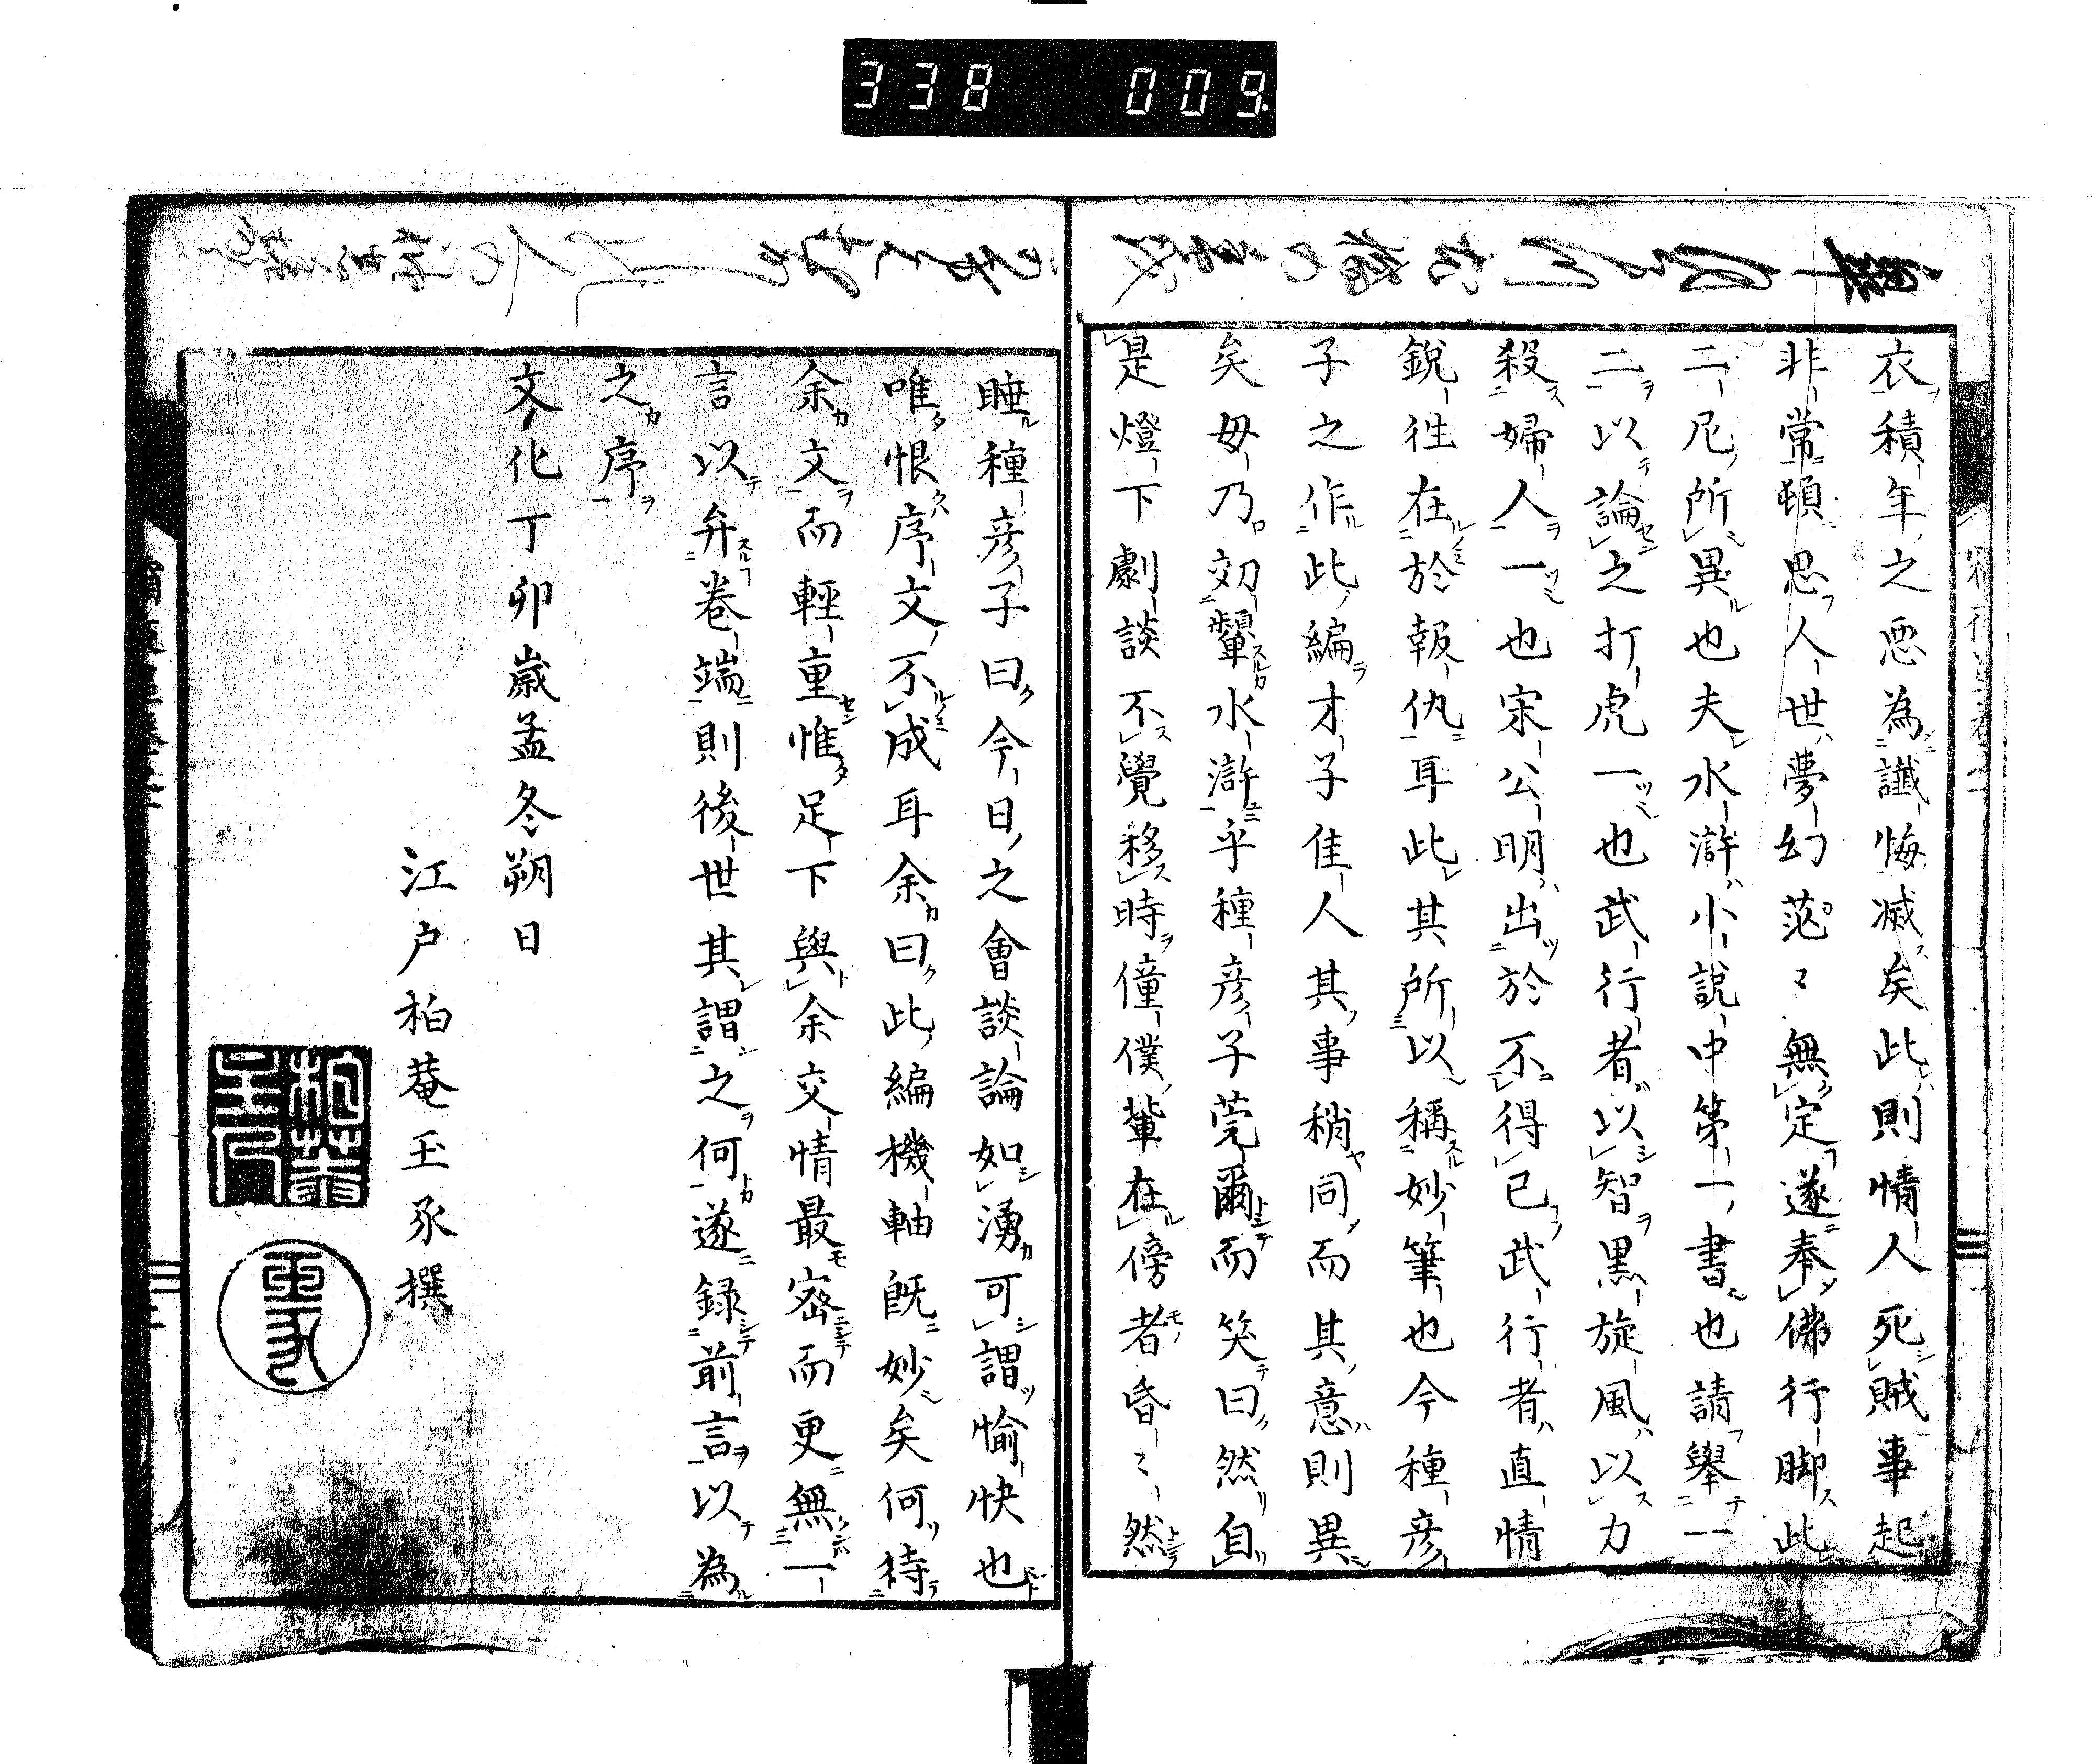 338 009
衣積年之悪為讖悔滅矣此則情人死賊事起
非常頓思人世夢幻茫〻無定遂奉佛行脚此
二尼所異也夫水滸小說中第一書也請舉一
二以論之打虎一也武行者以智黒旋風以力
殺婦人一也宋公明出於不得已武行者直情
銳往在於報仇耳此其所以稱妙筆也今種彦
子之作此編才子佳人其事稍同而其意則異
矣毋乃効顰水滸乎種彦子莞爾而笑曰然自
是燈下劇談不覺移時僮僕輩在傍者昏〻然
睡種彦子曰今日之會談論如湧可謂愉快也
唯恨序文不成耳余曰此編機軸既妙矣何待
余文而輕重惟足下與余交情最密而更無一
言以弁卷端則後世其謂之何遂録前言以為
之序
文化丁卯歳孟冬朔日
江戸柏菴玉承撰